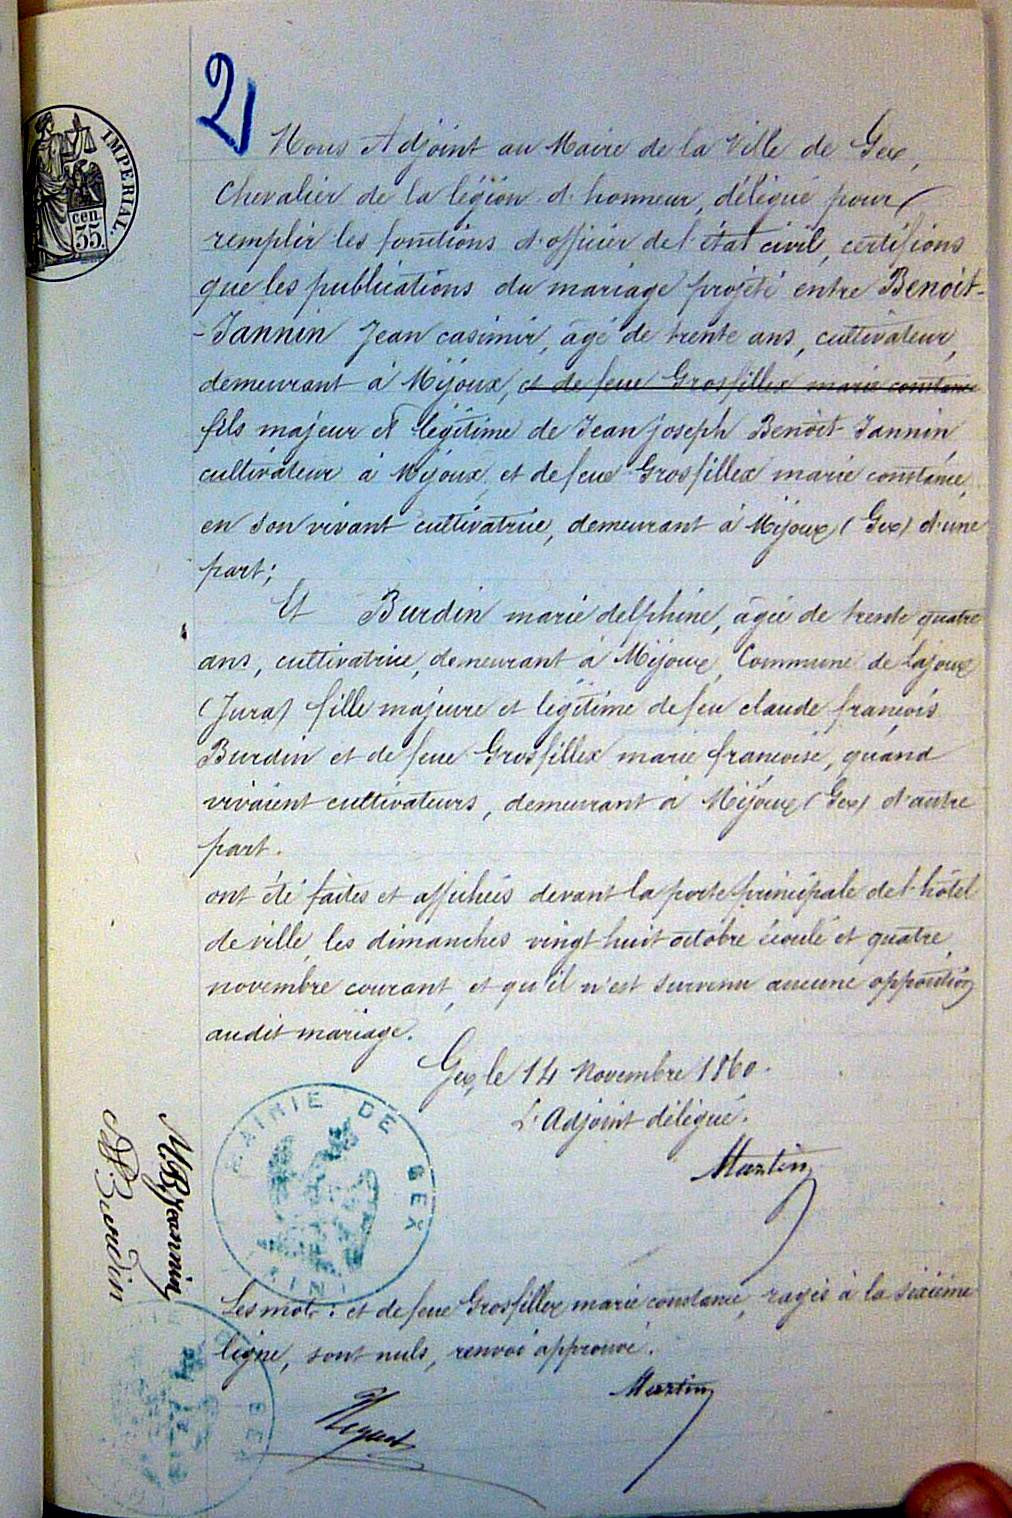 2
IMPERIAL.
cen.
35
Nous Adjoint au Maire de la Ville de Gex,
Chevalier de la légion d'honneur, délégué pour
remplir les fonctions d'officier de l'état civil, certifions
que les publications du mariage projeté entre Benoit-
-Jannin Jean casimir, âgé de trente ans, cultivateur,
demeurant à Mijoux, et de feue Grosfillex marie constance
fils majeur et légitime de Jean joseph Benoit-Jannin,
cultivateur à Mijoux, et de feue Grosfillex marie constance,
en son vivant cultivatrice, demeurant à Mijoux (Gex) d'une
part;
Et Burdin marie delphine, âgée de trente quatre
ans, cultivatrice, demeurant à Mijoux, Commune de Lajoux
(Jura) fille majeure et légitime de feu claude françois
Burdin et de feue Grosfillex marie françoise, quand
vivaient cultivateurs, demeurant à Mijoux (Gex) d'autre
part.
ont été faites et affichées devant la porte principale de l'hôtel
de ville, les dimanches vingt huit octobre écoulé et quatre
novembre courant, et qu'il n'est survenu aucune opposition
audit mariage.
Gex, le 14 Novembre 1860.
L'Adjoint délégué.
Martin
MAIRIE DE GEX
AIN
M. BJeannin
Burdin
Les mots: et de feue Grosfillex marie constance, rayés à la sixième
ligne, sont nuls, renvoi approuvé.
Martin
GEX